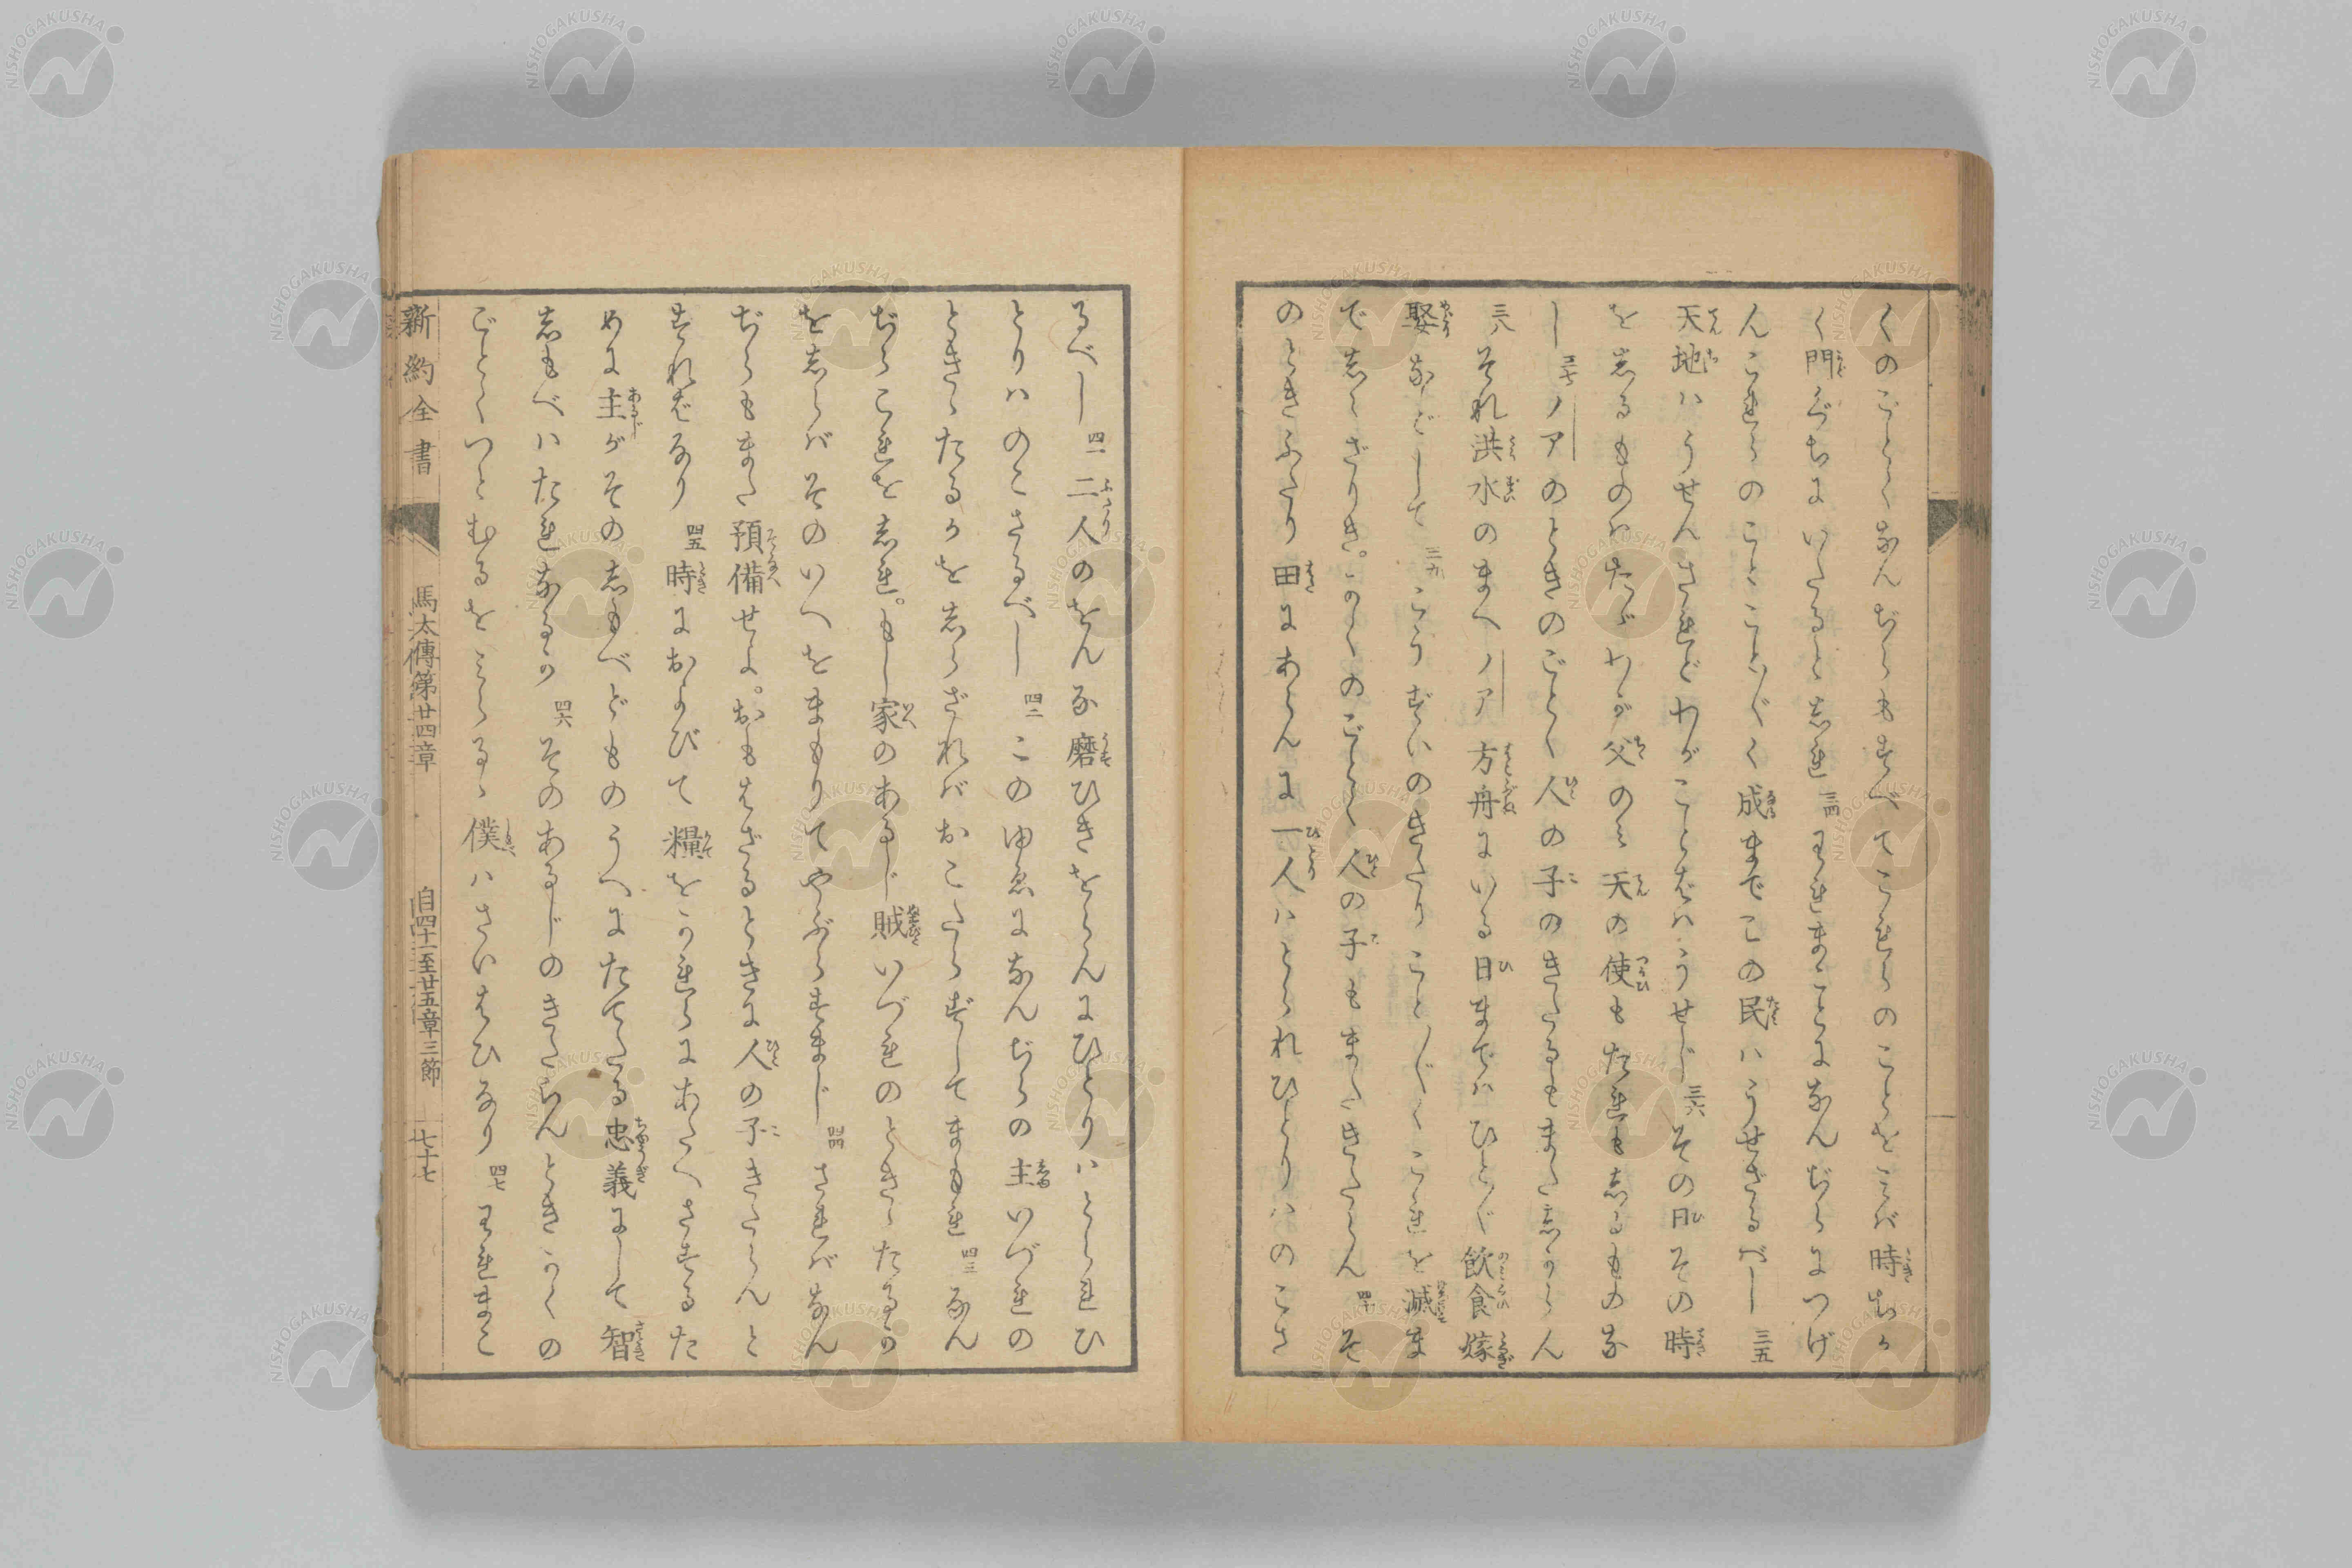 くのごとくなんぢらもすべてこれらのことをみバ時ちか
く門ぐちにいたると志れ 三四 われまことになんぢらにつげ
んこれらのことことごとく成までこの民ハうせざるべし 三五
天地ハうせんされどわがことばハうせじ 三六 その日その時
を志るものハたゞわが父のみ天の使もたれも志るものな
し 三七 ノアのときのごとく人の子のきたるもまた志からん
三八 それ洪水のまへノア方舟にいる日まではひとびと飲食嫁
娶などして 三九 こうずいのきたりことごとくこれを滅ま
で志らざりき。かくのごとく人の子もまたきたらん 四十 そ
のときふたり田にあらんに一人ハとられひとりハのこさ
るべし 四一 二人のをんな磨ひきをらんにひとりハとられひ
とりハのこさるべし 四二 このゆゑになんぢらの主いづれの
とききたるかを志らざれバおこたらずしてまもれ 四三 なん
ぢらこれを志れ。もし家のあるじ賊いづれのとききたるか
を志らバそのいへをまもりてやぶらすまじ 四四 さればなん
ぢらもまた預備せよ。おもはざるときに人の子きたらんと
すれバなり 四五 時におよびて糧をかれらにあたへさするた
めに主がその志もべどものうへにたてたる忠義にして智
志もべハたれなるか 四六 そのあるじのきたらんときかくの
ごとくつとむるをみらるゝ僕ハさいはひなり 四七 われまこ
新約全書
馬太傳第廿四章
自四十一至廿五章三節
七十七
NISHOGAKUSHA